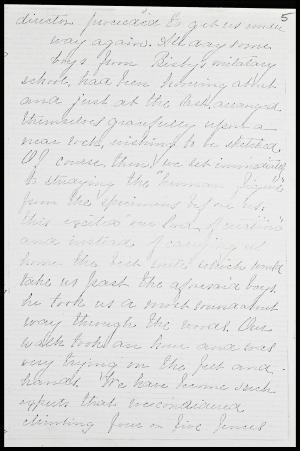 5
director proceeded to get us under
way again. All day some
boys from Bisby's military
school, had been hovering about
and just at the last arranged
themselves gracefully upon a
near rock, wishing to be sketched.
Of course, then, we set immediately
to studying the "human figure"
from the specimens before us.
this excited our love of
and instead of carrying us
home the best route which would
take us past the aforesaid boys
he took us a most roundabout
way through the woods. Our
walk took an hour and was
very trying on the feet and
hands. We have become such
experts that we considered
climbing four or five fences